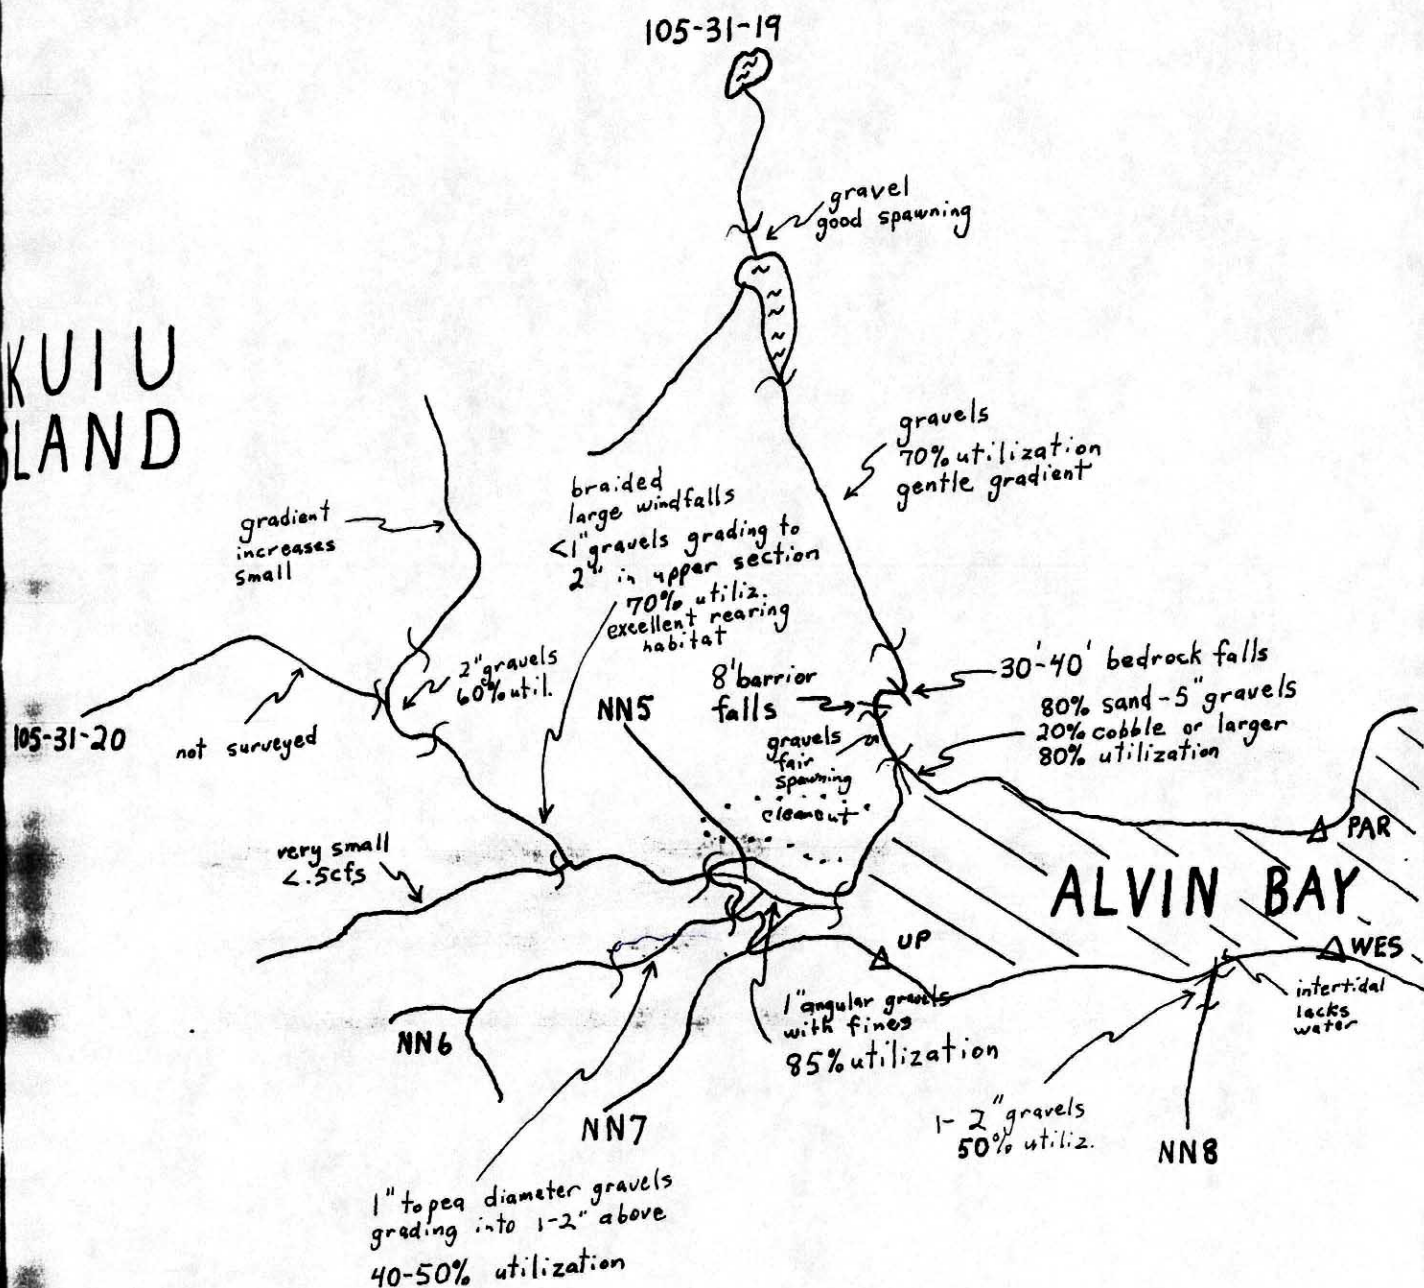 105-31-19
gravel
good spawning
KUIU
ISLAND
gravels
70% utilization
gentle gradient
braided
large windfalls
<1" gravels grading to
2" in upper section
70% utiliz.
excellent rearing
habitat
gradient
increases
small
2" gravels
60% util.
105-31-20
not surveyed
NN5
8' barrior
falls
30'-40' bedrock falls
80% sand-5" gravels
20% cobble or larger
80% utilization
gravels
fair
spawning
clearcut
PAR
very small
<.5cfs
ALVIN BAY
UP
WES
intertidal
lacks
water
1" angular gravels
with fines
85% utilization
NN6
NN7
1-2" gravels
50% utiliz.
NN8
1" to pea diameter gravels
grading into 1-2" above
40-50% utilization